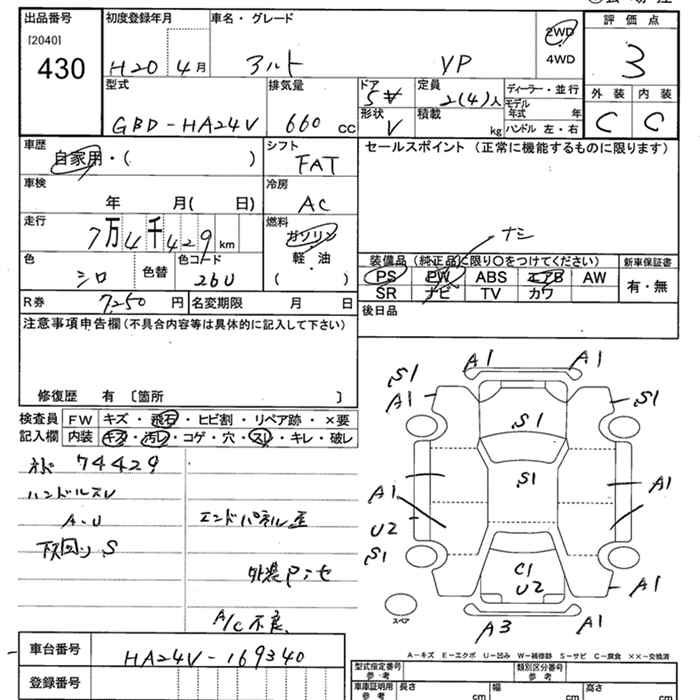 出品番号
[2040]
430
初度登録年月
H20 4月
車名・グレード
アルト VP
2WD
4WD
評価点
3
外装 内装
C C
型式
GBD-HA24V
排気量
660 CC
ドア
5
形状
V
定員
2(4)人
積載
kg
ディーラー・並行
モデル年式 年
ハンドル 左・右
車歴
自家用・( )
シフト
FAT
セールスポイント (正常に機能するものに限ります)
車検
年 月( 日)
冷房
AC
走行
7万4千429km
燃料
ガソリン
軽・油
( )
ナシ
色
シロ
色替
色コード
26U
装備品 (純正品に限り〇をつけてください)
新車保証書
PS PW ABS エアB AW
SR ナビ TV カワ
有・無
R券 7,250 円
名変期限 月 日
後日品
注意事項申告欄 (不具合内容等は具体的に記入して下さい)
修復歴 有 〔箇所 〕
検査員
記入欄
FW キズ・飛石・ヒビ割・リペア跡・×要
内装 キズ・汚レ・コゲ・穴・スレ・キレ・破レ
74429
ハンドルスレ
A・U
下回り S
エンドパネル歪
A/C不良
A1 A1
S1 A1 S1
S1
S1
A1 A1
U2
S1
C1
U2
A1
A3 A1
スペア
A-キズ E-エクボ U-凹み W-補修跡 S-サビ C-腐食 ××-交換済
車台番号
HA24V-169340
登録番号
型式指定番号
参考
類別区分番号
参考
車庫証明用
参考
長さ cm
幅 cm
高さ cm